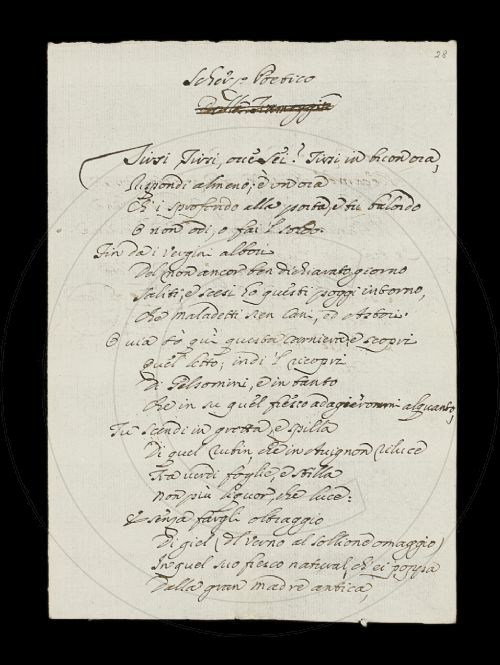 28
Scherzo Poetico
Tirsi Tirsi, ove sei? Tirsi in bicon ora,
Rispondi almeno; è un ora
Ch'i sprofondo alla porta, e tu balordo
O non odi, o fai 'l sordo.
Fin da i vergini albori
Del non ancor ben dichiarato giorno
Saliti, e scesi ho questi poggi intorno,
Che maladetti sien cani, ed
O via tò qui questa carniera, e scopri
quel letto; indi 'l ricopri
Di Gelsomini, e in tanto
che in su quel fresco adagierommi alquanto,
Tu scendi in grotta, e spilla
Di quel rubin che in Avignon riluce
Tra verdi foglie, e stilla
non più liquor, che luce:
E senza fargli oltraggio
Di giel (Il verno al sollione omaggio)
In quel suo fresco natural, ch'ei poppa
Dalla gran madre antica,